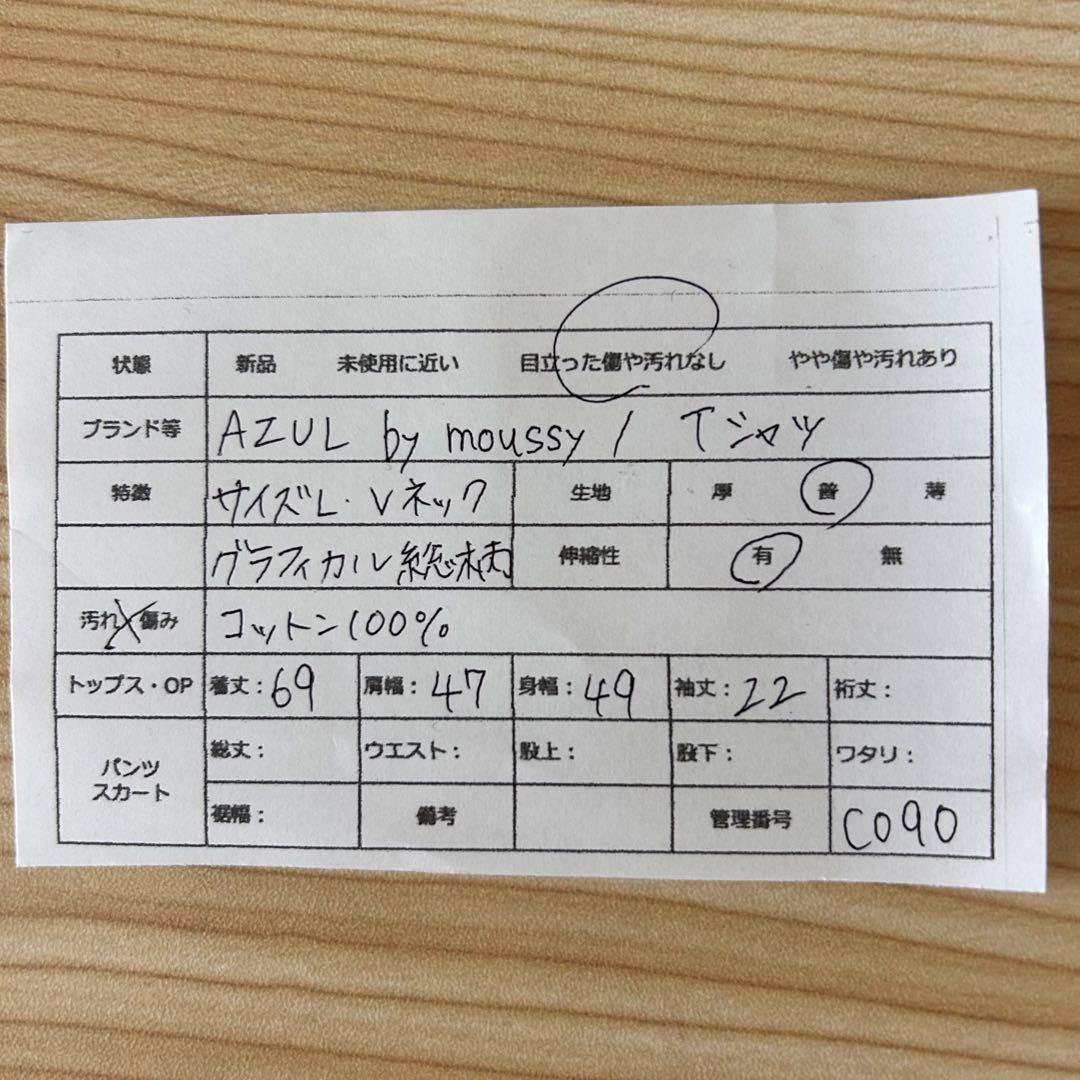 状態 新品 未使用に近い 目立った傷や汚れなし やや傷や汚れあり
ブランド等 AZUL by moussy / Tシャツ
特徴 サイズL・Vネック 生地 厚 普 薄
グラフィカル総柄 伸縮性 有 無
汚れ 傷み コットン100%
トップス・OP 着丈：69 肩幅：47 身幅：49 袖丈：22 裄丈：
パンツ
スカート
総丈： ウエスト： 股上： 股下： ワタリ：
裾幅： 備考 管理番号 C090